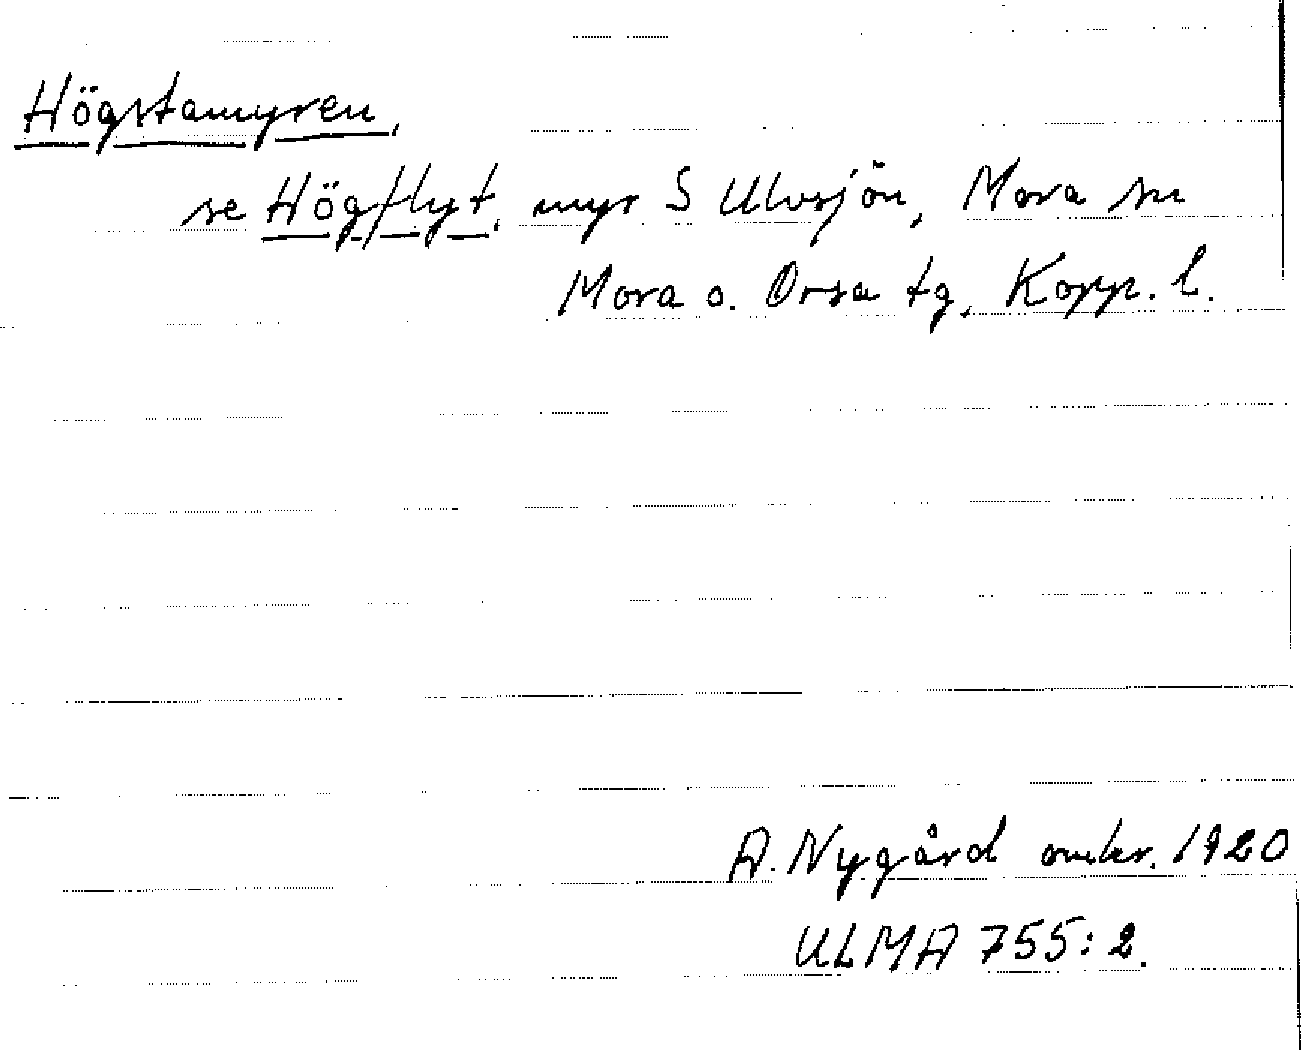 Högstamyren,
se Högflyt, myr S Ulvsjön, Mora sn
Mora o. Orsa tg, Kopp. l.
A. Nygård omkr. 1920
ULMA 755:2.